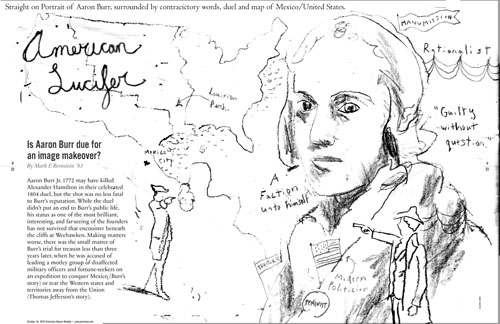 Straight on Portrait of Aaron Burr, surrounded by contracictory words, duel and map of Mexico/United States.
American
Lucifer
MANUMISSION
Rationalist
"Guilty
without
question"
Mexico
City
A
Faction
unto himself
Modern
Politician
FEMINIST
Is Aaron Burr due for
an image makeover?
By Mark F. Bernstein '83
Aaron Burr Jr. 1772 may have killed
Alexander Hamilton in their celebrated
1804 duel, but the shot was no less fatal
to Burr's reputation. While the duel
didn't put an end to Burr's public life,
his status as one of the most brilliant,
interesting, and far-seeing of the founders
has not survived that encounter beneath
the cliffs at Weehawken. Making matters
worse, there was the small matter of
Burr's trial for treason less than three
years later, when he was accused of
leading a motley group of disaffected
military officers and fortune-seekers on
an expedition to conquer Mexico (Burr's
story) or tear the Western states and
territories away from the Union
(Thomas Jefferson's story).
Princeton Alumni Weekly